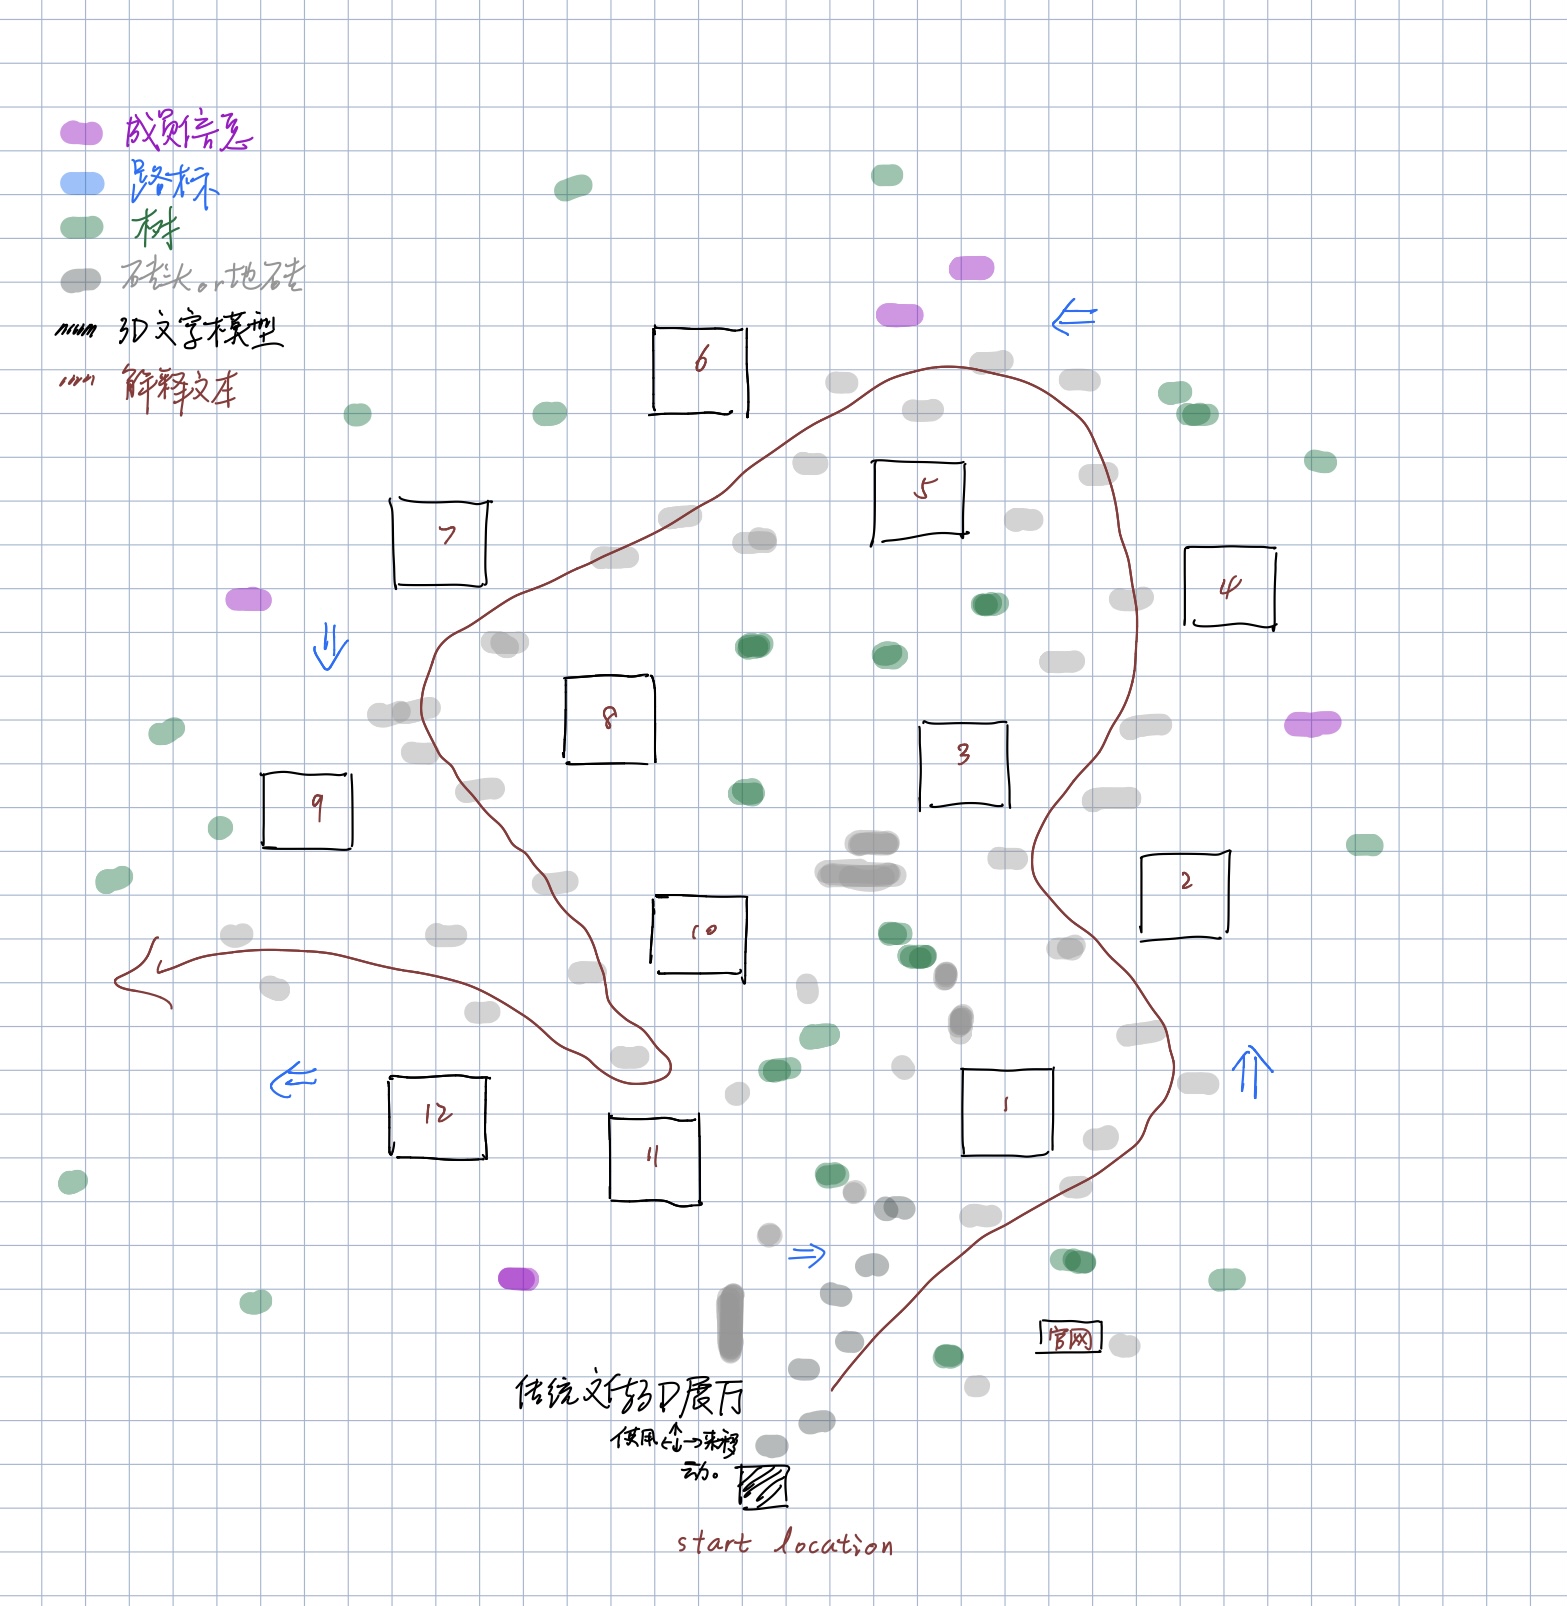 成员信息
路标
树
砖头or地砖
3D文字模型
解释文本
6
5
7
4
8
3
9
2
10
1
12
11
官网
传统文化3D展厅
使用←↑↓→来移
动。
start location